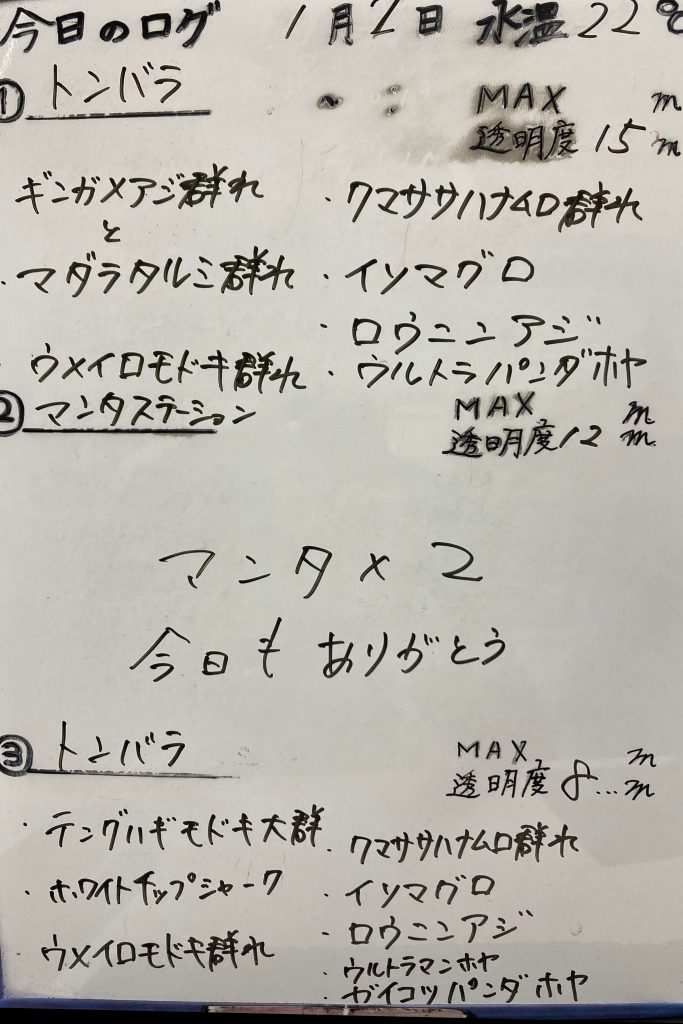 今日のログ 1月2日 水温22℃
① トンバラ
MAX m
透明度 15 m
ギンガメアジ群れ
と
・マダラタルミ群れ
・ウメイロモドキ群れ
・クマササハナムロ群れ
・イソマグロ
・ロウニンアジ
・ウルトラパンダホヤ
② マンタステーション
MAX m
透明度 12 m
マンタ×2
今日も ありがとう
③ トンバラ
MAX m
透明度 8… m
・テングハギモドキ大群
・ホワイトチップシャーク
ウメイロモドキ群れ
・クマササハナムロ群れ
・イソマグロ
・ロウニンアジ
・ウルトラマンホヤ
・ガイコツパンダホヤ